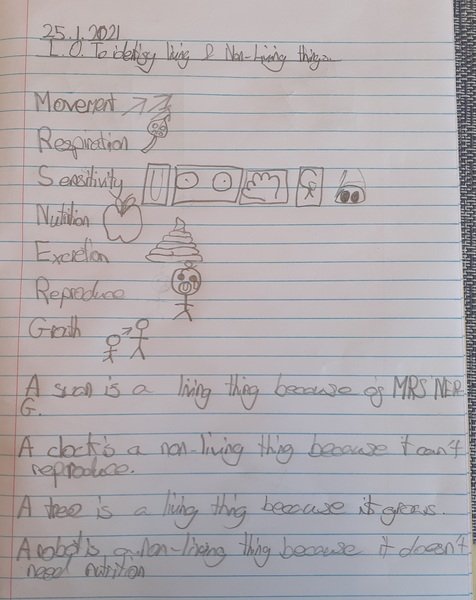 25.1.2021
L.O. To identify living & Non-Living things.
Movement
Respiration
Sensitivity
Nutrition
Excretion
Reproduce
Groth
A swan is a living thing because of MRS NER
G.
A clock is a non-living thing because it can't
reproduce.
A tree is a living thing because it grows.
A robot is a non-living thing because it doesn't
need nutrition